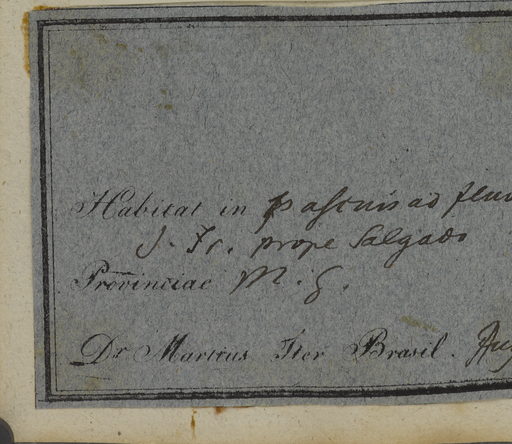 Habitat in pascuis ad fluv
S. Fr. prope Salgado
Provinciae M. G.
Dr Martius Iter Brasil. Aug